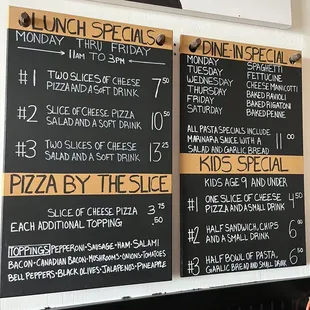 LUNCH SPECIALS
MONDAY THRU FRIDAY
11AM TO 3PM
#1 TWO SLICES OF CHEESE
PIZZA AND A SOFT DRINK 7.50
#2 SLICE OF CHEESE PIZZA
SALAD AND A SOFT DRINK 10.50
#3 TWO SLICES OF CHEESE
SALAD AND A SOFT DRINK 13.25
PIZZA BY THE SLICE
SLICE OF CHEESE PIZZA 3.75
EACH ADDITIONAL TOPPING .50
TOPPINGS PEPPERONI-SAUSAGE-HAM-SALAMI
BACON-CANADIAN BACON-MUSHROOMS-ONIONS-TOMATOES
BELL PEPPERS-BLACK OLIVES-JALAPEÑOS-PINEAPPLE
DINE-IN SPECIAL
MONDAY SPAGHETTI
TUESDAY FETTUCINE
WEDNESDAY CHEESE MANICOTTI
THURSDAY BAKED RAVIOLI
FRIDAY BAKED RIGATONI
SATURDAY BAKED PENNE
ALL PASTA SPECIALS INCLUDE
MARINARA SAUCE WITH A
SALAD AND GARLIC BREAD 11.00
KIDS SPECIAL
KIDS AGE 9 AND UNDER
#1 ONE SLICE OF CHEESE
PIZZA AND A SMALL DRINK 4.50
#2 HALF SANDWICH, CHIPS
AND A SMALL DRINK 6.00
#3 HALF BOWL OF PASTA,
GARLIC BREAD AND SMALL DRINK 6.00